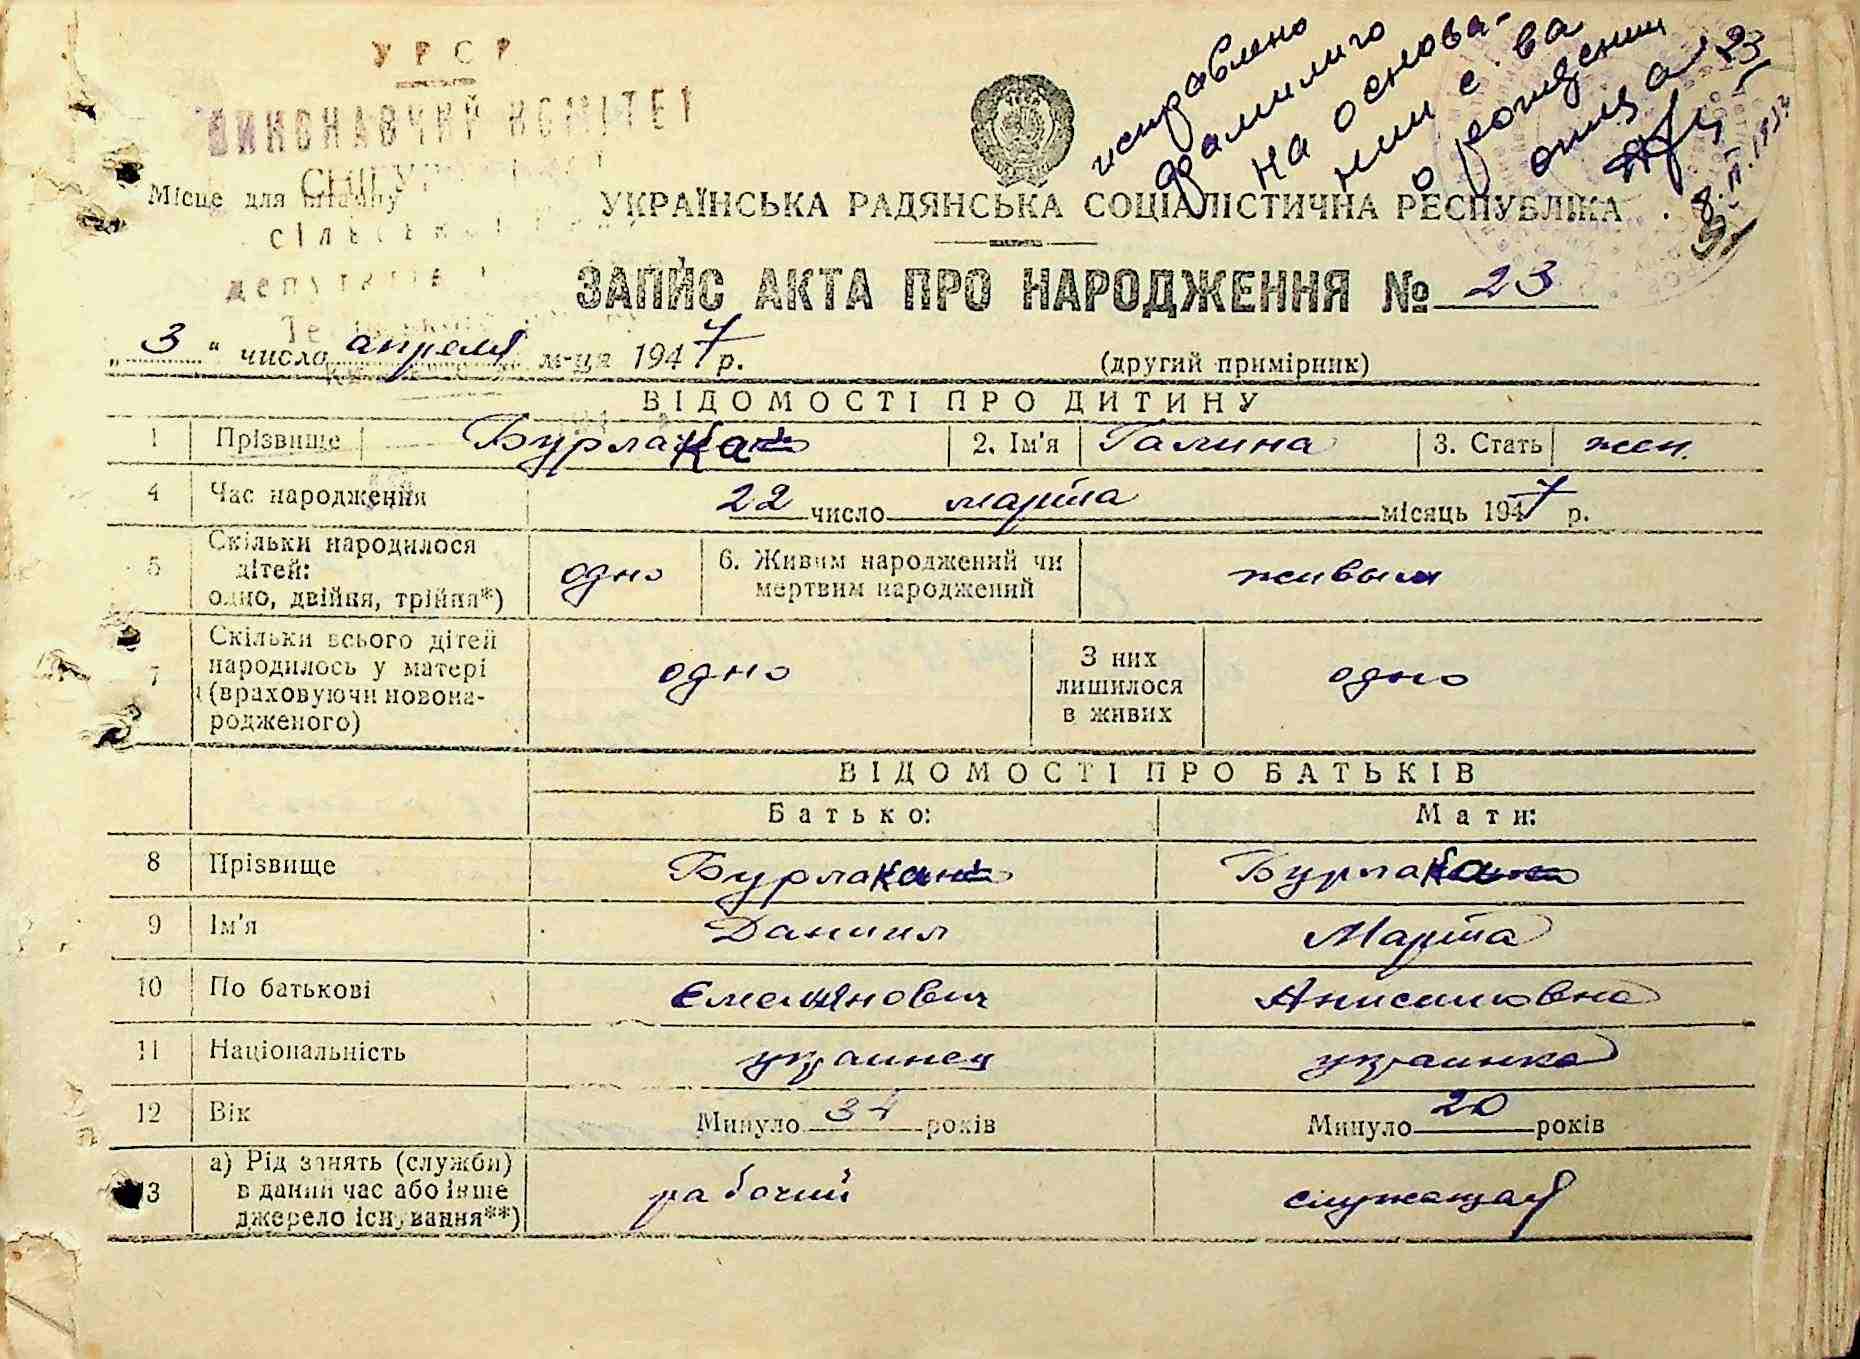 УРСР
ВИКОНАВЧИЙ КОМІТЕТ
Місце для штампу
сільської
депутатів
исправлено
фамилию
на основа-
нии с-ва
о рождении
отца
УКРАЇНСЬКА РАДЯНСЬКА СОЦІАЛІСТИЧНА РЕСПУБЛІКА
ЗАПИС АКТА ПРО НАРОДЖЕННЯ № 23
„3“ число апреля м-ця 1947 р. (другий примірник)
ВІДОМОСТІ ПРО ДИТИНУ
1 Прізвище Бурлака 2. Ім'я Галина 3. Стать жен.
4 Час народження 22 число марта місяць 1947 р.
5 Скільки народилося дітей: одно, двійня, трійня*) одно 6. Живим народжений чи мертвим народжений живым
7 Скільки всього дітей народилось у матері (враховуючи новона-родженого) одно З них лишилося в живих одно
ВІДОМОСТІ ПРО БАТЬКІВ
Батько: Мати:
8 Прізвище Бурлака Бурлака
9 Ім'я Даниил Марта
10 По батькові Емельянович Анисимовна
11 Національність украинец украинка
12 Вік Минуло 34 років Минуло 20 років
13 а) Рід занять (служби) в даний час або інше джерело існування**) рабочий служащая